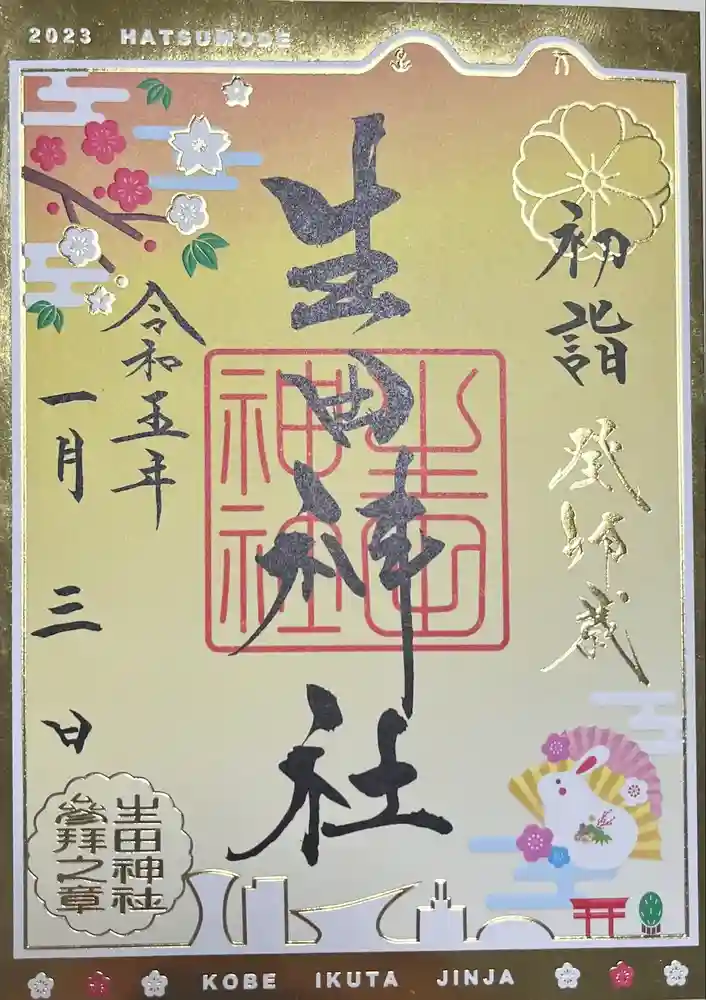 2023 HATSUMODE
初詣 癸卯歳
生田神社
生田
神社
令和五年
一月三日
生田神社
參拜之章
KOBE IKUTA JINJA